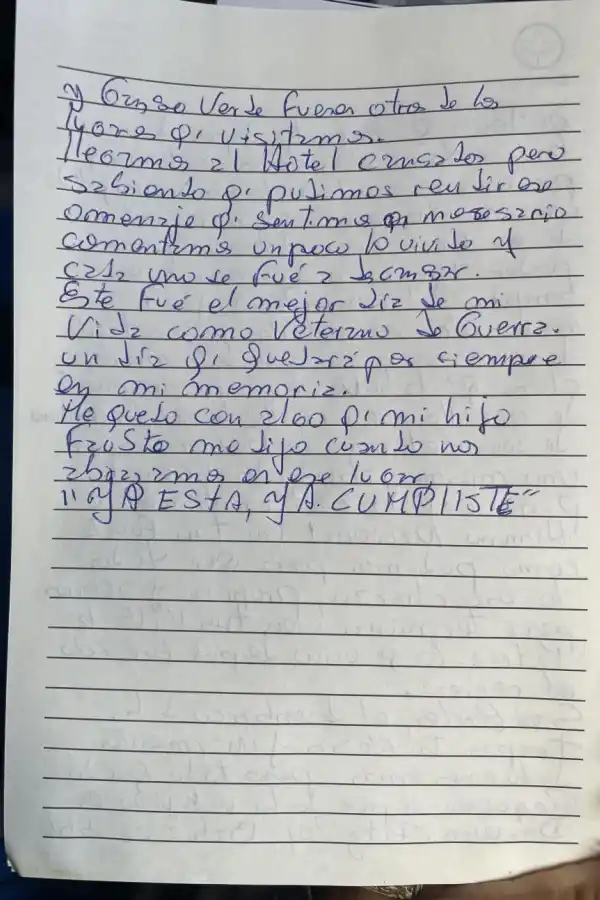 y Ganso Verde fueron otros de los
lugares q' visitamos.
llegamos al Hotel cansados pero
Sabiendo q' pudimos rendir ese
omenaje q. sentimos
comentamos un poco lo vivido y
cada uno se fué a descansar.
Este fué el mejor día de mi
Vida como Veterano de Guerra.
un día q' quedará por siempre
en mi memoria.
Me quedo con algo q' mi hijo
Fausto me dijo cuando nos
abrazamos en ese lugar,
"YA ESTA, YA. CUMPLISTE"